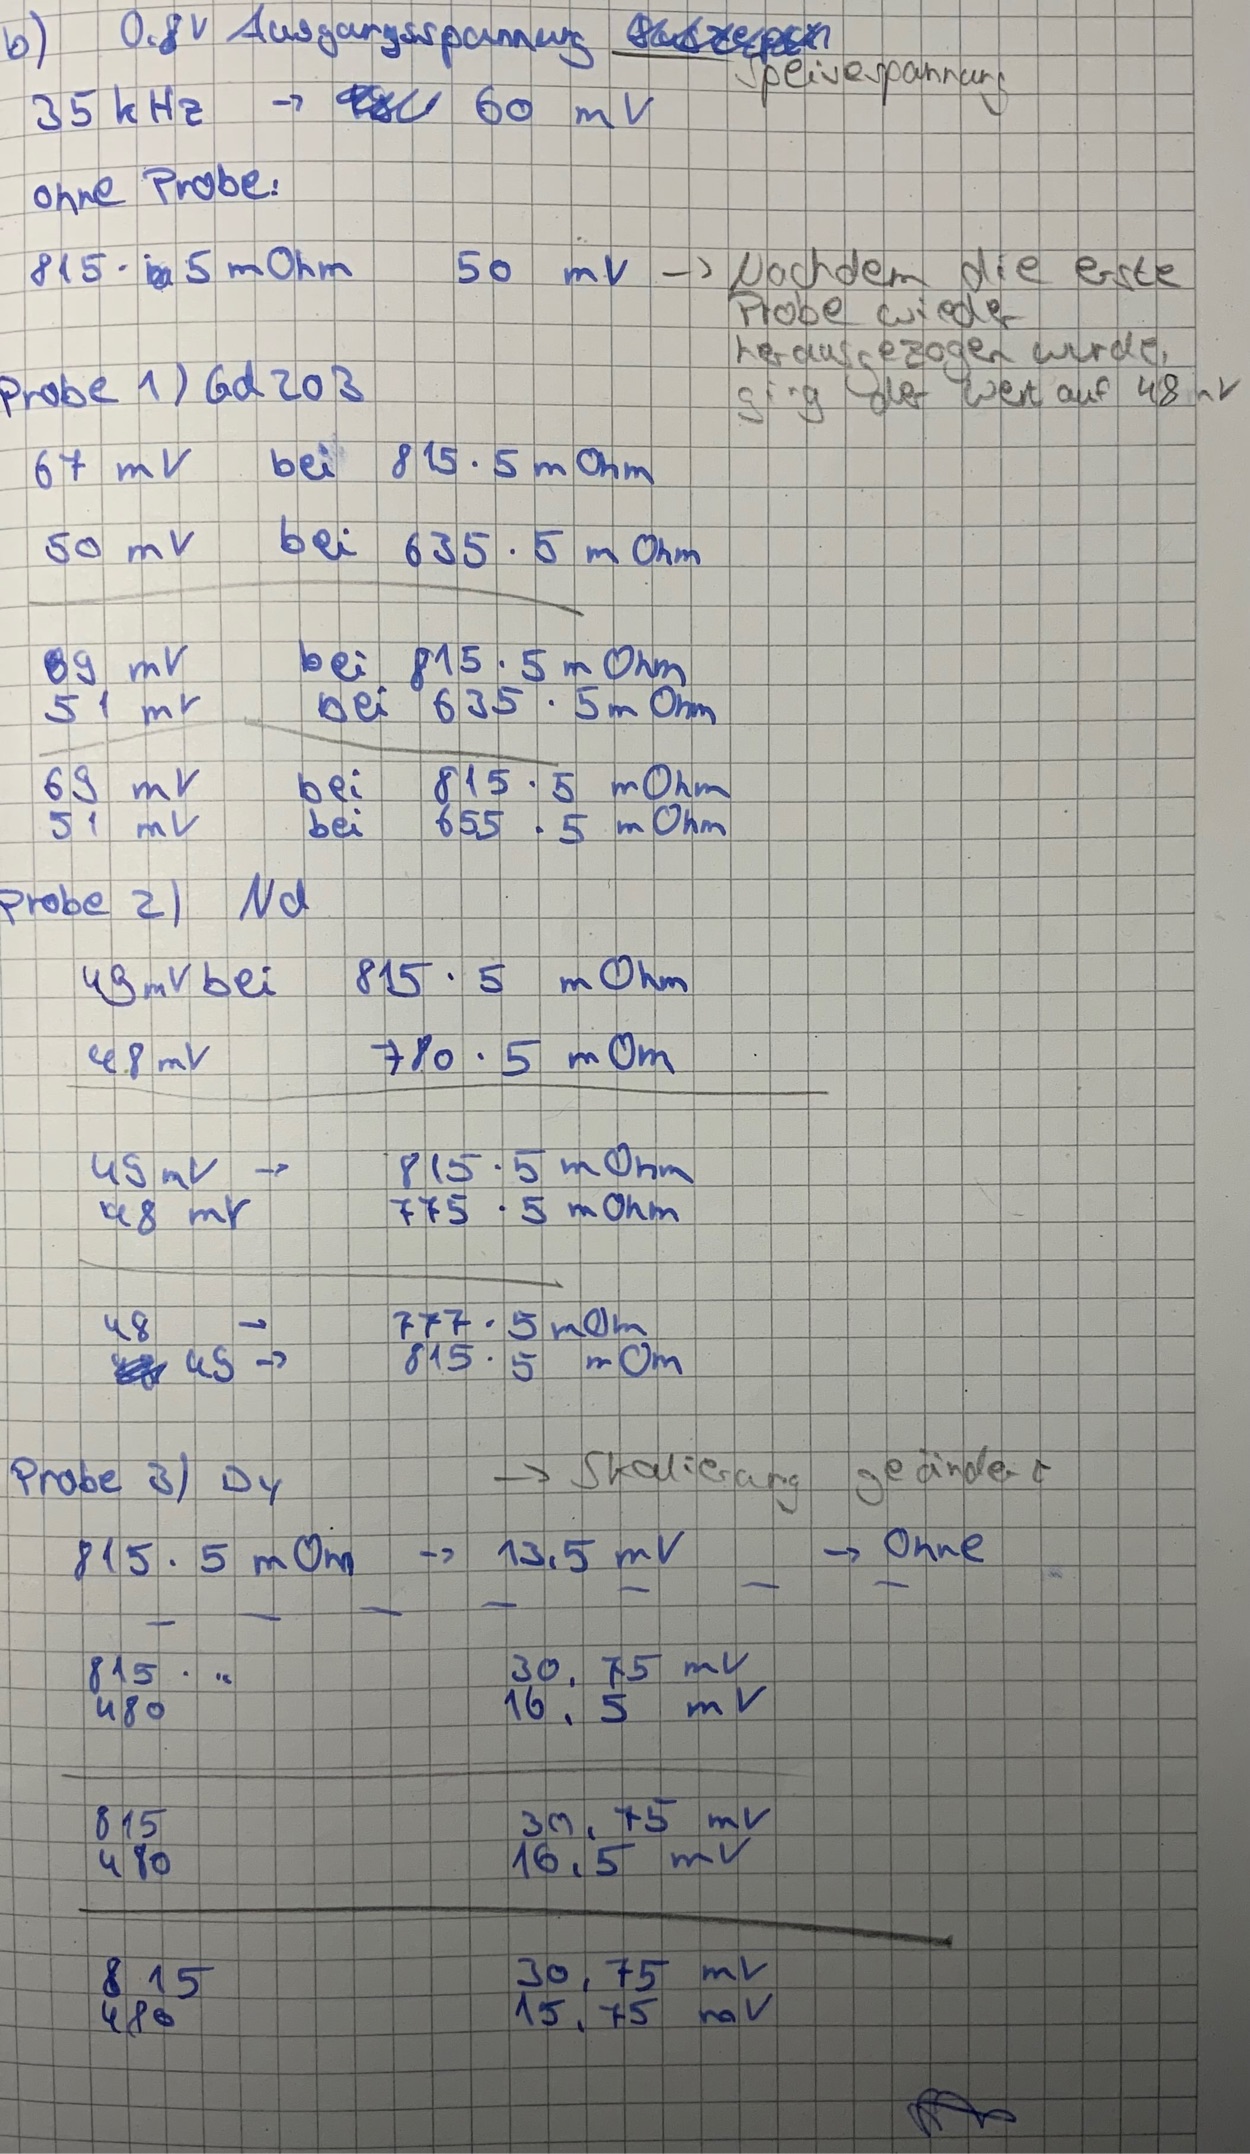 b) 0.8V Ausgangsspannung
Speisespannung
35 kHz → 60 mV
ohne Probe:
815 · 5 mOhm 50 mV → Nachdem die erste
Probe wieder
herausgezogen wurde,
ging der Wert auf 48 mV
Probe 1) Gd2O3
67 mV bei 815 · 5 mOhm
50 mV bei 635 · 5 mOhm
69 mV bei 815 · 5 mOhm
51 mV bei 635 · 5 mOhm
69 mV bei 815 · 5 mOhm
51 mV bei 655 · 5 mOhm
Probe 2) Nd
49 mV bei 815 · 5 mOhm
48 mV 780 · 5 mOm
49 mV → 815 · 5 mOhm
48 mV 775 · 5 mOhm
48 → 777 · 5 mOm
49 → 815 · 5 mOm
Probe 3) Dy → Skalierung geändert
815 · 5 mOm → 13.5 mV → Ohne
815 · " 30.75 mV
480 16.5 mV
815 30.75 mV
480 16.5 mV
815 30.75 mV
480 15.75 mV